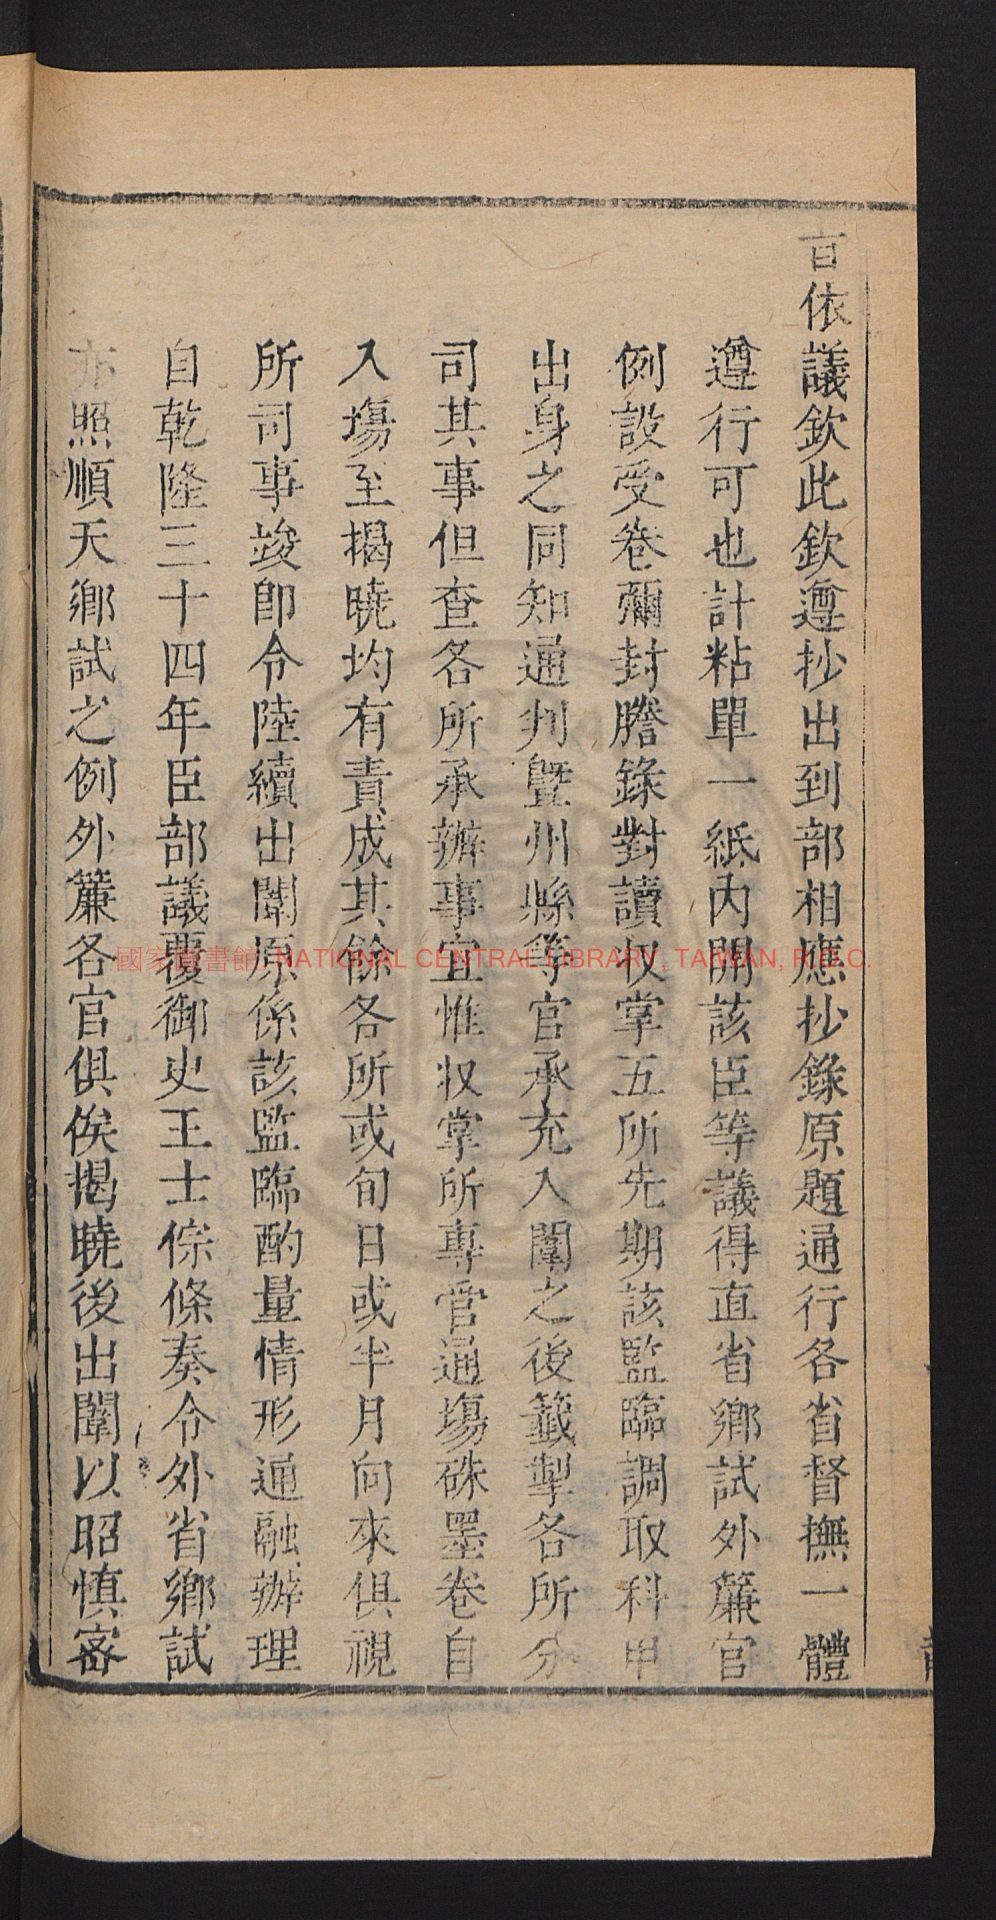 旨依議欽此欽遵抄出到部相應抄錄原題通行各省督撫一體
遵行可也計粘單一紙內開該臣等議得直省鄉試外簾官
例設受卷彌封謄錄對讀収掌五所先期該監臨調取科甲
出身之同知通判暨州縣等官承充入闈之後籤掣各所分
司其事但查各所承辦事宜惟収掌所專管通塲硃墨卷自
入塲至揭曉均有責成其餘各所或旬日或半月向來俱視
所司事竣即令陸續出闈原係該監臨酌量情形通融辦理
自乾隆三十四年臣部議覆御史王士倧條奏令外省鄉試
亦照順天鄉試之例外簾各官俱俟揭曉後出闈以昭慎密
國家圖書館 NATIONAL CENTRAL LIBRARY, TAIWAN, R.O.C.